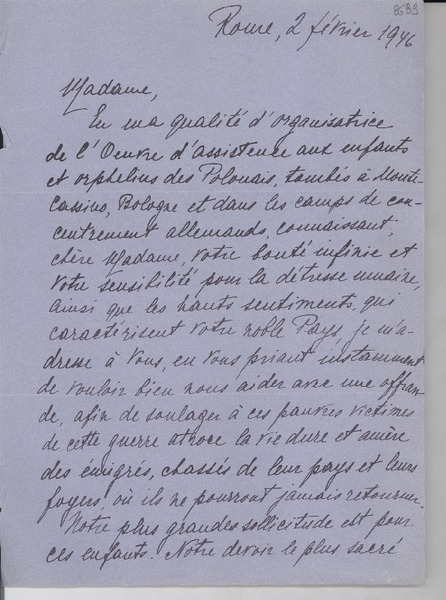 8688
Rome, 2 février 1946
Madame,
En ma qualité d'organisatrice
de l'Oeuvre d'Assistence aux enfants
et orphelins des Polonais, tombés à Monte-
Cassino, Bologne et dans les camps de con-
centrement allemands, connaissant,
chère Madame, Votre bonté infinie et
Votre sensibilité pour la détresse umaine,
ainsi que les hauts sentiments, qui
caractérisent Votre noble Pays, je m'a-
dresse à Vous, en Vous priant instamment
de vouloir bien nous aider avec une offran-
de, afin de soulager à ces pauvres victimes
de cette guerre atroce la vie dure et amère
des émigrés, chassés de leur pays et leurs
foyers, où ils ne pourront jamais retourner.
Notre plus grande sollicitude est pour
ces enfants. Notre devoir le plus sacré